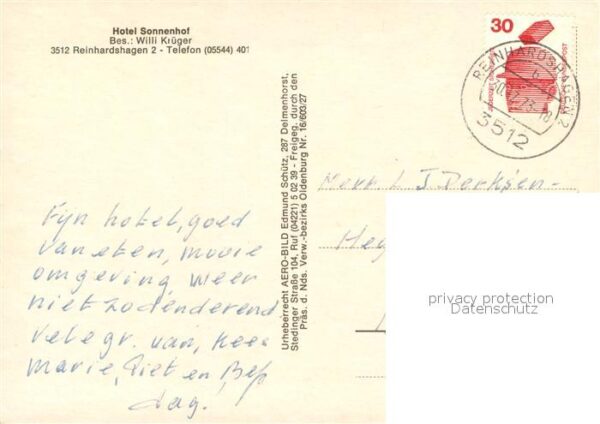 Hotel Sonnenhof
Bes.: Willi Krüger
3512 Reinhardshagen 2 - Telefon (05544) 401
30
REINHARDSHAGEN 2
3512
Urheberrecht AERO-BILD Edmund Schütz, 287 Delmenhorst,
Stedinger Straße 104, Ruf (04221) 5 02 39 - Freigeg. durch den
Präs. d. Nds. Verw.-bezirks Oldenburg Nr. 16/603/27
Fijn hotel, goed
van eten, mooie
omgeving weer
niet zo denderend
vele gr. van, Kees
Marie, Piet en Bep
dag.
Derksen-
Hey
privacy protection
Datenschutz